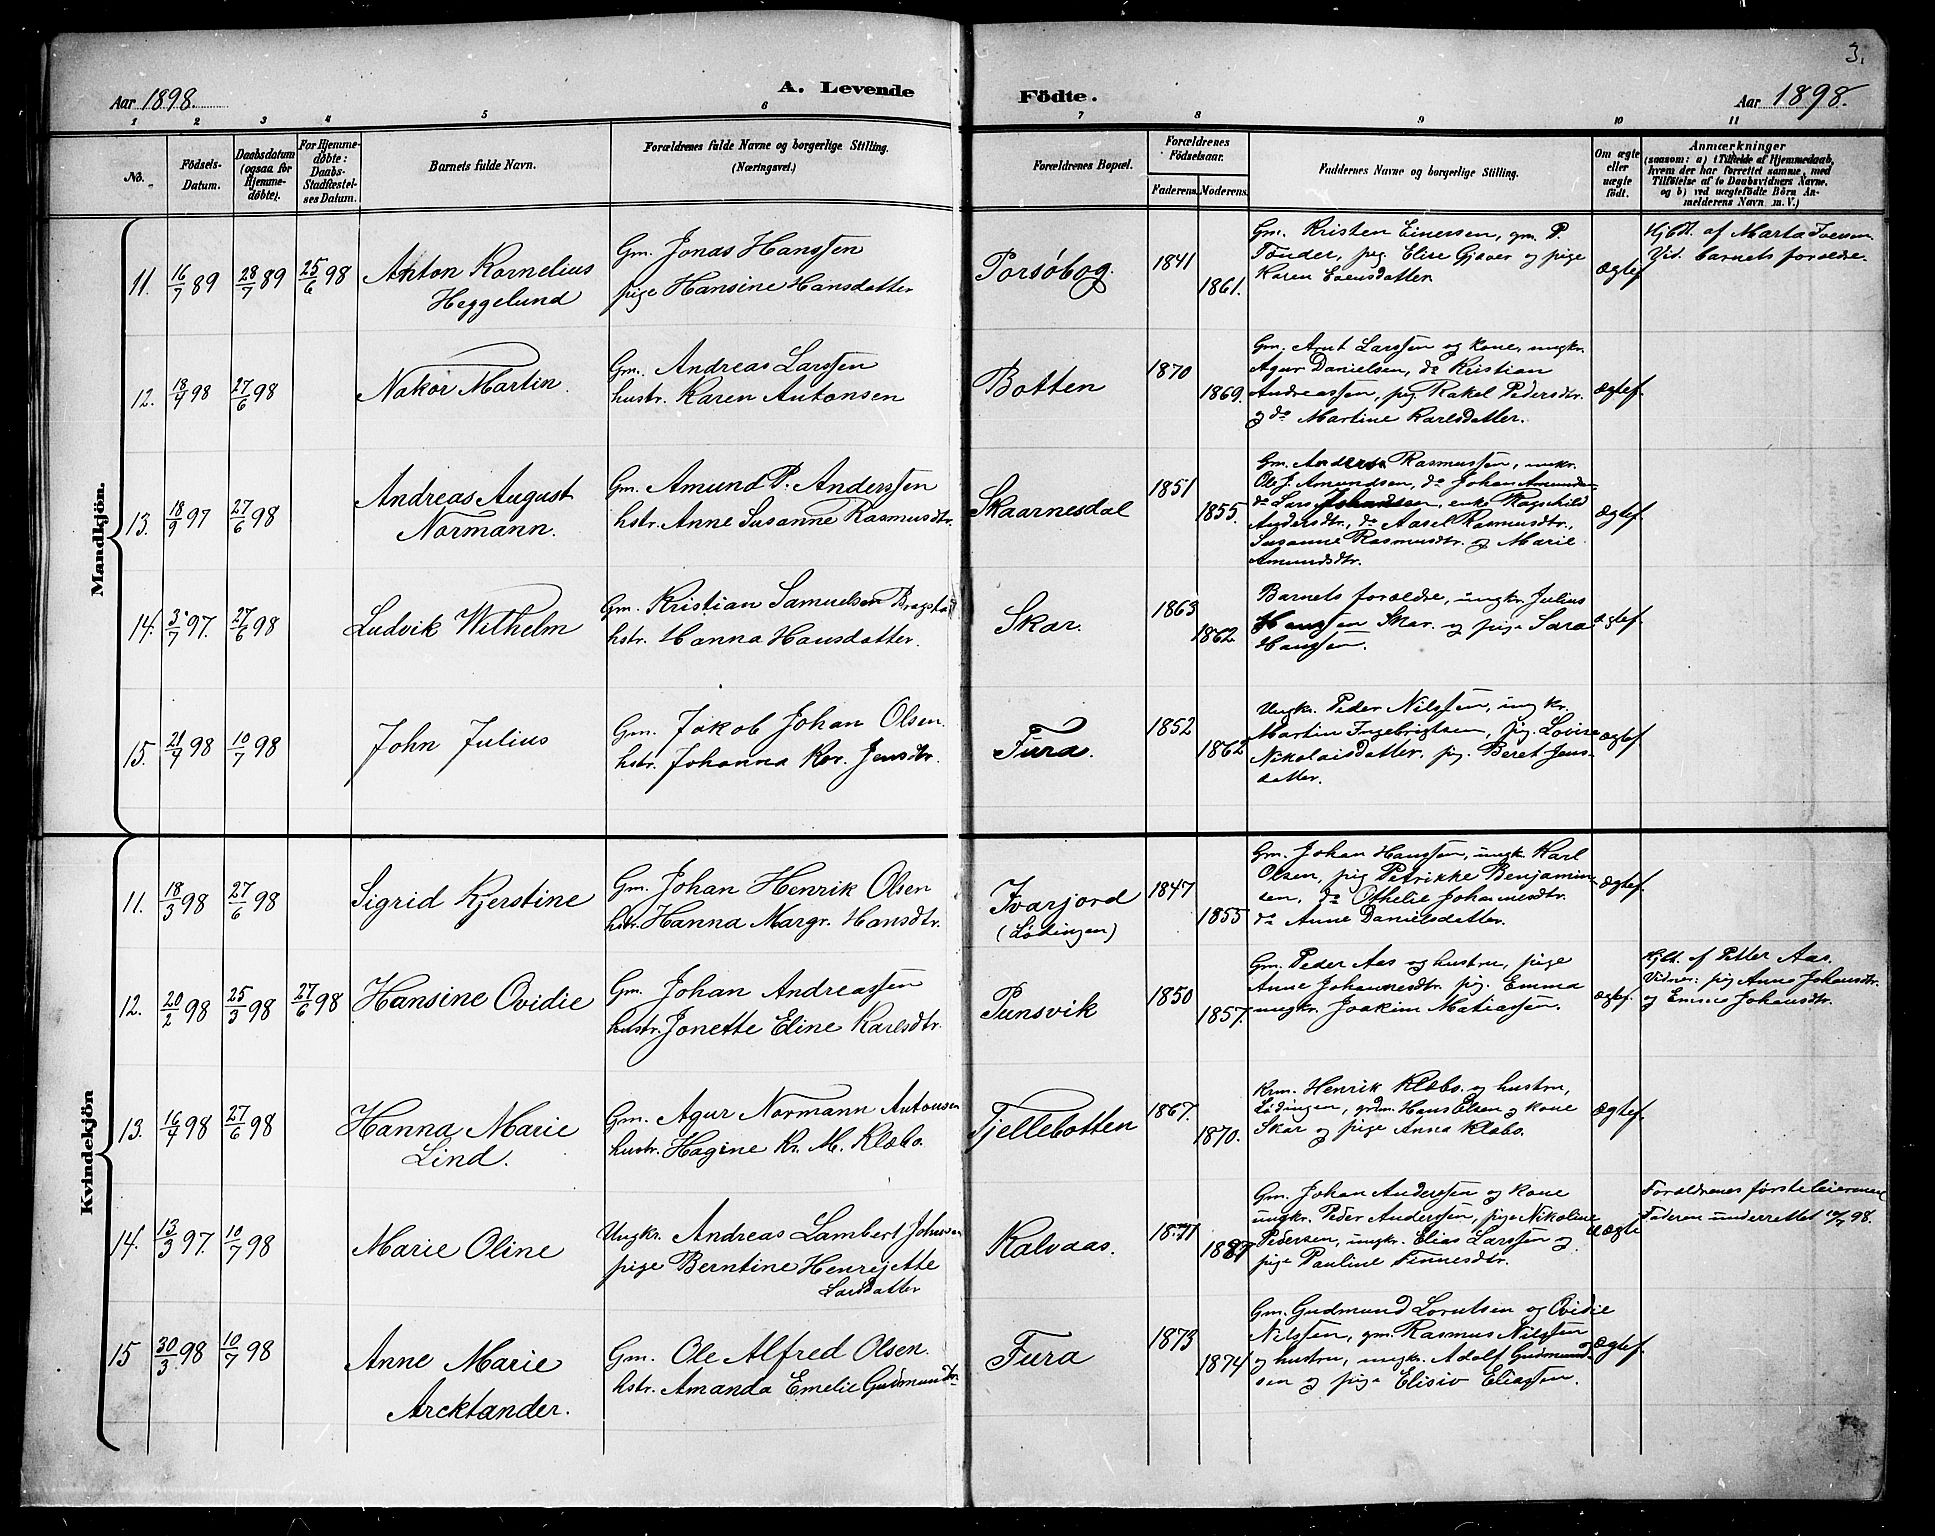 3.
Aar 1898.
A. Levende
Födte.
Aar 1898.
1 2 3 4 5 6 7 8 9 10 11
No.
Födsels-
Datum.
Daabsdatum
(ogsaa for
Hjemme-
døbte).
For Hjemme-
døbte:
Daabs-
Stadfæstel-
ses Datum.
Barnets fulde Navn.
Forældrenes fulde Navne og borgerlige Stilling.
(Næringsvei.)
Forældrenes Bopæl.
Forældrenes
Fødselsaar.
Faderens.
Moderens.
Faddernes Navne og borgerlige Stilling.
Om ægte
eller
uægte
født.
Anmærkninger
(saasom: a) i Tilfælde af Hjemmedaab,
hvem der har forrettet samme, med
Tilføielse af to Daabsvidners Navne.
og b) ved uægtefødte Börn An-
melderens Navn m. V.)
Mandkjön.
11. 16/7 89 28/7 89 25/6 98
Anton Kornelius
Heggelund
Gm. Jonas Hanssen
pige Hansine Hansdatter
Porsöbog
1841
1861.
Gm. Kristen Einersen, gm. P.
Tönder, pig. Elise Gjæver og pige
Karen Evensdatter
ægtef
Hjbdt. af Marta Iversen
Vid. barnets forældre.
12. 18/4 98 27/6 98
Nakor Martin.
Gm. Andreas Larssen
hustr. Karen Antonsen
Botten
1870
1869.
Gm. Arnt Larssen og kone, ungkr.
Agur Danielsen, do Kristian
Andreassen, pig. Rakel Pedersdtr.
og do Martine Karlsdatter.
ægtef.
13. 18/9 97 27/6 98
Andreas August
Normann.
Gm. Amund P. Anderssen
hstr. Anne Susanne Rasmusdtr.
Skaarnesdal
1851
1855.
Gm. Anders Rasmussen, ungkr.
Ole J. Amundsen, do Johan Amunds-
do Lars Johansen, enke Ragnhild
Andersdtr., do Aasel Rasmusdtr.,
Susanne Rasmusdtr. og Marie
Amundsdtr.
ægtef.
14. 3/7 97. 27/6 98
Ludvik Wilhelm
Gm. Kristian Samuelsen Bragstad
hstr. Hanna Hansdatter.
Skar.
1863
1862
Barnets forældre, ungkr. Julius
Hanssen Skar. og pige Sara
Hanssen.
ægtef.
15. 21/4 98 10/7 98
John Julius
Gm. Jakob Johan Olsen.
hstr. Johanna Kor. Jensdtr.
Fura.
1852
1862
Ungkr. Peder Nilssen, ungkr.
Martin Ingebrigtsen, pig. Louise
Nikolaisdatter. pig. Beret Jens-
datter.
ægtef.
Kvindekjön
11. 18/3 98 27/6 98
Sigrid Kjerstine
Gm. Johan Henrik Olsen
hstr. Hanna Margr. Hansdtr.
Ivarjord
(Lødingen)
1847
1855.
Gm. Johan Hanssen, ungkr. Karl
Olsen, pig Petrikke Benjamin-
sen, do Othelie Johannesdtr.
do Anne Danielsdatter.
ægtef.
12. 20/2 98 25/3 98 27/6 98
Hansine Ovidie
Gm. Johan Andreassen
hustr. Jonette Eline Karlsdtr.
Punsvik
1850
1857.
Gm. Peder Aas og hustru, pige
Anne Johannesdtr. pig. Emma
ungkr. Joakim Matiassen.
ægtef.
Hjdt. af Petter Aas.
Vidner: pig Anne Johansdtr.
og Emma Johansdtr.
13. 16/4 98 27/6 98
Hanna Marie
Lind.
Gm. Agur Normann Antonsen
hustr. Hagine Kr. M. Klæbo.
Fjellebotten
1867.
1870.
Krm. Henrik Klæbo. og hustru,
Lödingen, grdm. Hans Elsen og kone
Skar og pige Anna Klæbo.
ægtef.
14. 13/3 97. 10/7 98
Marie Oline
Ungkr. Andreas Lambert Johnsen
pige Berntine Henrijette
Larsdatter
Kalvaas.
1871
Gm. Johan Anderssen og kone
ungkr. Peder Anderssen, pige Nikoline
Pedersen, ungkr. Elias Larssen og
pige Pauline Finnesdtr.
uægte
Forældrenes første leiermaal
Faderen underrettet 10/7 98.
15 30/3 98 10/7 98
Anne Marie
Arcktander.
Gm. Ole Alfred Olsen.
hstr. Amanda Emelie Gudmundsdtr
Fura
1873
1874
Gm. Gudmund Lorntsen og Ovidie
Nilssen, gm. Rasmus Nilssen
og hustru, ungkr. Adolf Gudmund-
sen og pige Elisiv Eliassen.
ægtef.